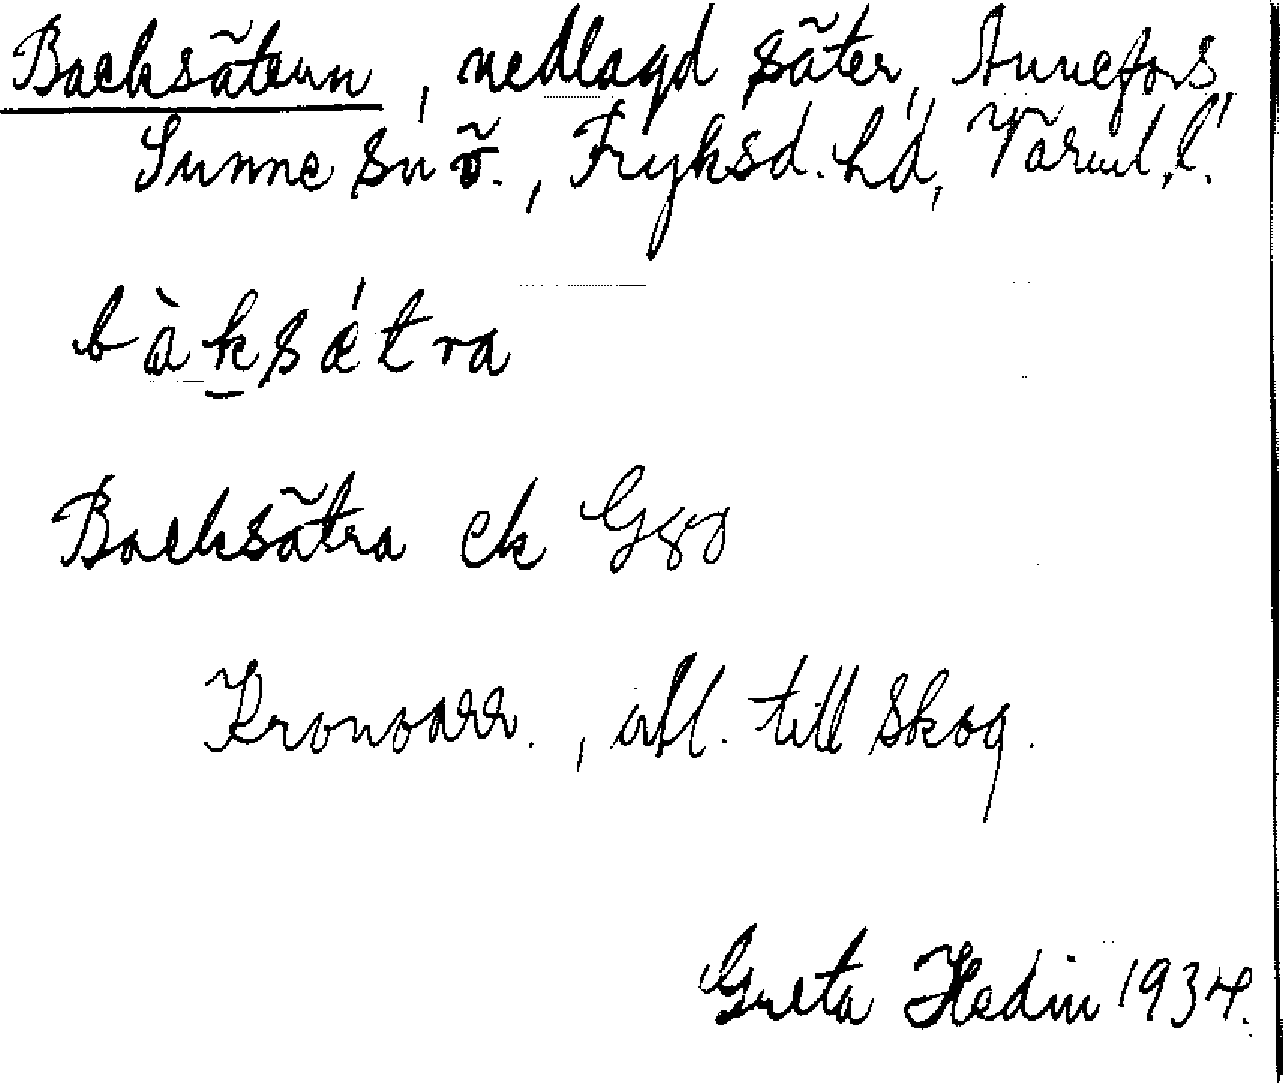 Backsätern, nedlagd säter, Annefors,
Sunne sn ö., Fryksd. hd, Värml. l.
bàksǽtra
Backsätra ek G
Kronoarr., utl. till skog.
Greta Hedin 1934.